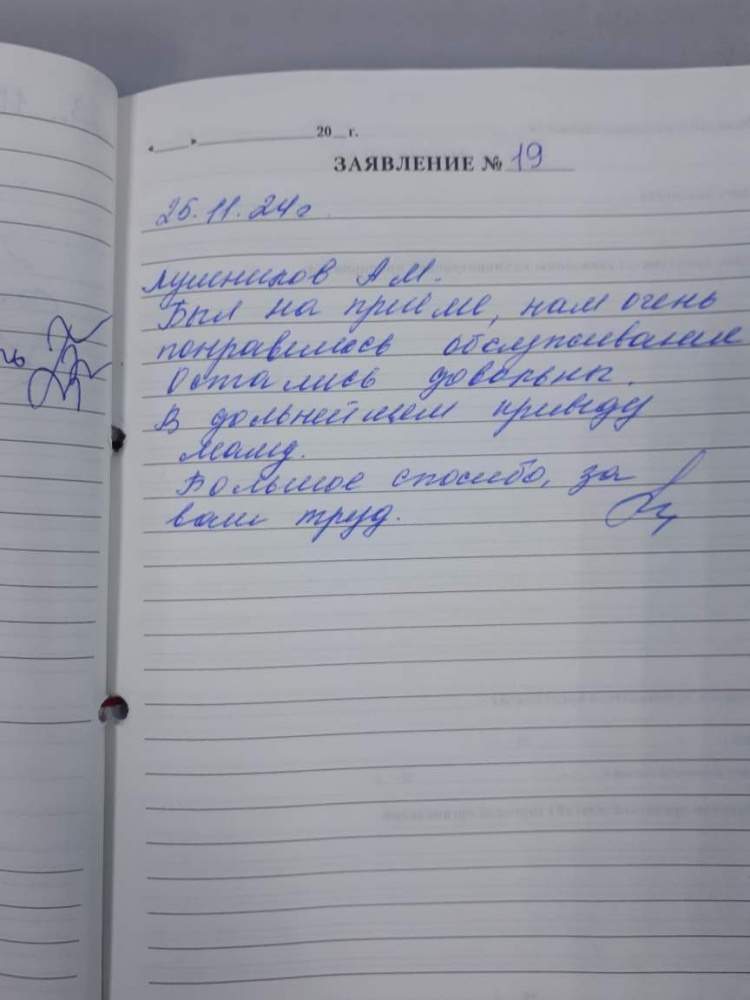 « » 20 г.
ЗАЯВЛЕНИЕ № 19
26.11.24г
Лушников А М.
Был на приёме, нам очень
понравилось обслуживание
Остались довольны.
В дольнейшем приведу
маму.
Большое спасибо, за
ваш труд.